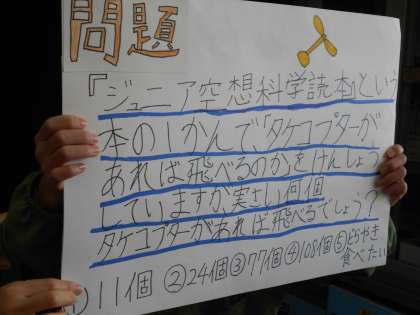 問題
『ジュニア空想科学読本』という
本の1かんで、「タケコプターが、
あれば飛べるのかをけんしょう
していますが、実さい何個
タケコプターがあれば飛べるでしょう?
①11個 ②24個 ③77個 ④108個 ⑤どらやき
食べたい